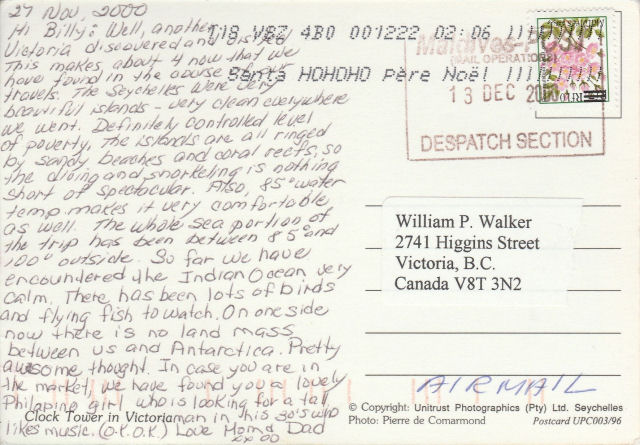 27 Nov, 2000
Hi Billy: Well, another
Victoria discovered and
This makes about 4 now that we
have found in the course
travels. The Seychelles were very
beautiful islands - very clean everywhere
we went. Definitely controlled level
of poverty. The islands are all ringed
by sandy beaches and coral reefs, so
the diving and snorkeling is nothing
short of spectacular. Also, 85° water
temp. makes it very comfortable
as well. The whole sea portion of
the trip has been between 85° and
100° outside. So far we have
encountered the Indian Ocean very
calm. There has been lots of birds
and flying fish to watch. On one side
now there is no land mass
between us and Antarctica. Pretty
awesome thought. In case you are in
the market, we have found you a lovely
Philapino girl who is looking for a tall
man in his 30's who
likes music. (O.K. O.K.) Love Mom & Dad
xx oo
Clock Tower in Victoria
T18 V8Z 4B0 001222 02:06
Santa HOHOHO Père Noël
13 DEC 2000
DESPATCH SECTION
William P. Walker
2741 Higgins Street
Victoria, B.C.
Canada V8T 3N2
AIRMAIL
© Copyright: Unitrust Photographics (Pty) Ltd. Seychelles
Photo: Pierre de Comarmond
Postcard UPC003/96